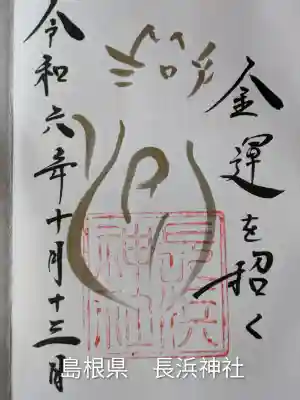 金運を招く
長浜神社
令和六年十月十三日
島根県　長浜神社